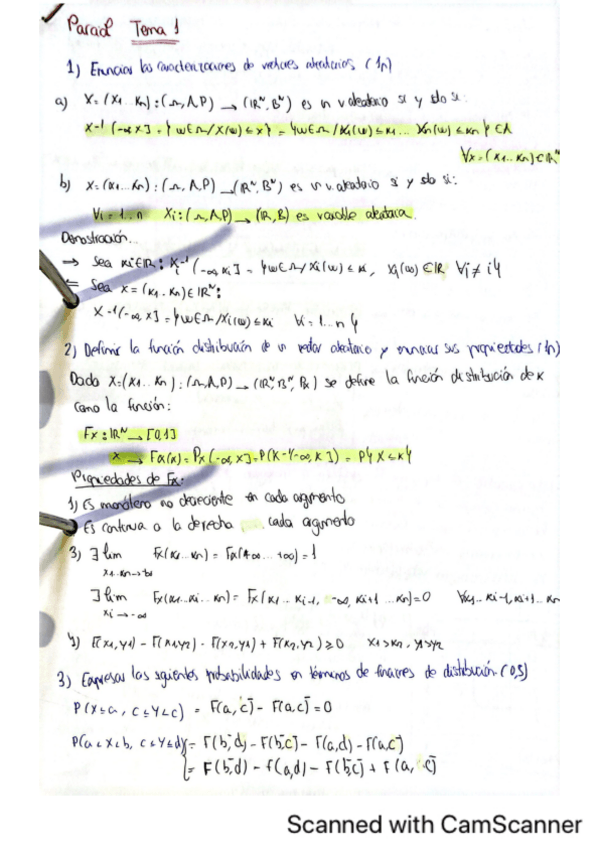 Parcial Tema 1
1) Enunciar las caracterizaciones de vectores aleatorios (1p)
a) X=(X1...Xn):(Ω,A,P) → (IRᴺ,Bᴺ) es un v aleatorio si y solo si:
X-1 (-∞ x] = {w∈Ω/X(w)≤x} = {w∈Ω/X1(w)≤x1... Xn(w)≤xn} ∈A
∀x=(x1...xn)∈IRᴺ
b) X=(X1...Xn):(Ω,A,P) → (IRᴺ,Bᴺ) es un v.aleatorio si y solo si:
∀i=1...n Xi:(Ω,A,P) → (IR,B) es variable aleatoria.
Demostración...
⇒ Sea xi∈IR: Xi-1 (-∞ xi] = {w∈Ω/Xi(w)≤xi, Xj(w)∈IR ∀j≠i}
⇐ Sea x=(x1...xn)∈IRᴺ:
X-1(-∞,x] = {w∈Ω/Xi(w)≤xi ∀i=1...n}
2) Definir la función distribución de un vector aleatorio y enunciar sus propiedades (1p)
Dado X=(X1...Xn):(Ω,A,P) → (IRᴺ,Bᴺ,Px) se define la función distribución de X
como la función:
Fx:IRᴺ → [0,1]
x → Fx(x)=Px(-∞,x]=P(X-1(-∞,x]) = P{X≤x}
Propiedades de Fx:
1) Es monótona no decreciente en cada argumento
Es continua a la derecha cada argumento
3) ∃ lim Fx(x1...xn) = Fx(+∞...+∞)=1
x1...xn→+∞
∃ lim Fx(x1...xi...xn) = Fx(x1...xi-1, -∞, xi+1...xn)=0 ∀x1...xi-1,xi+1...xn
xi → -∞
4) F(x1,y1) - F(x1,y2) - F(x2,y1) + F(x2,y2) ≥0
3) Expresar las siguientes probabilidades en términos de funciones de distribución. (0,5)
P(X≤a, c≤Y<c) = F(a,c⁻) - F(a,c⁻) = 0
P(a<X<b, c≤Y≤d) = F(b⁻,d) - F(b⁻,c⁻) - F(a,d) - F(a,c⁻)
= F(b⁻,d) - F(a,d) - F(b⁻,c⁻) + F(a,c⁻)
Scanned with CamScanner